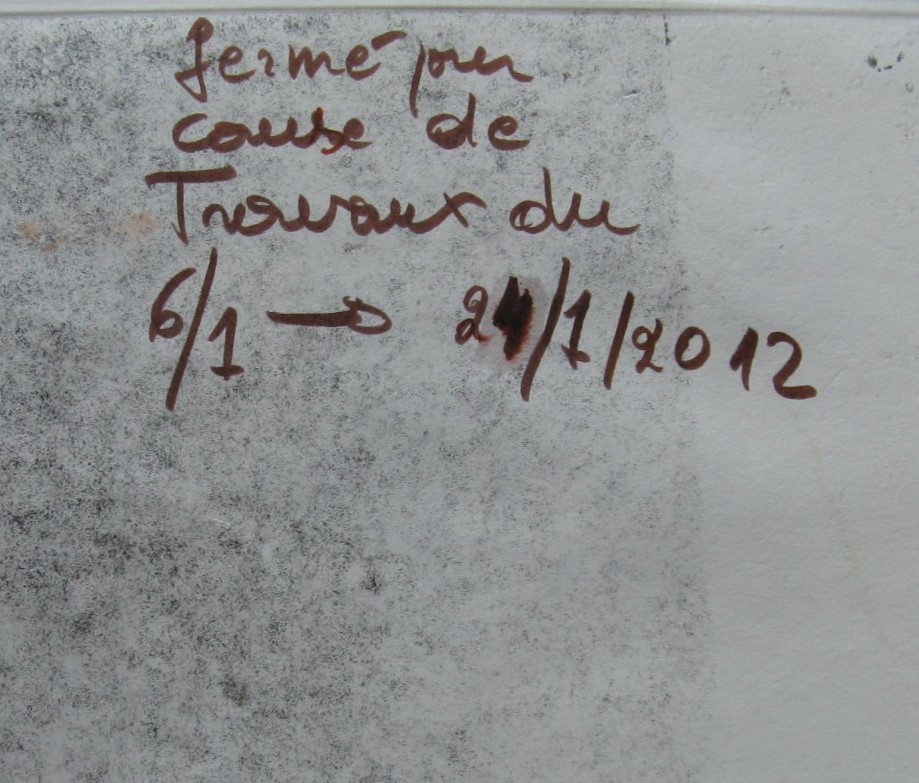 fermé pour
cause de
Travaux du
6/1 → 24/1/2012